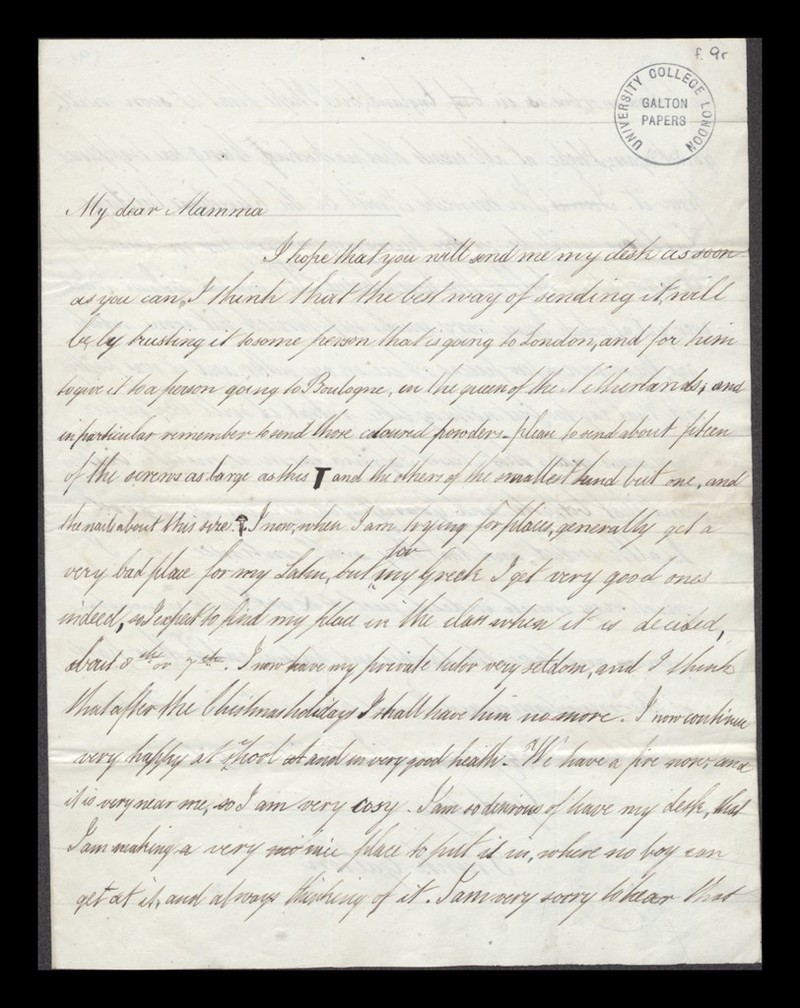 f. 9r
UNIVERSITY COLLEGE LONDON
GALTON
PAPERS
My dear Mamma
I hope that you will send me my desk as soon
as you can, I think that the best way of sending it, will
be, by trusting it to some person that is going to London, and for him
to give it to a person going to Boulogne, in the queen of the Netherlands; and
in particular remember to send those coloured powders. please to send about fifteen
of the screws as large as this and the others of the smallest kind but one, and
the nails about this size. I now, when I am trying for places, generally get a
very bad place for my Latin, but for my Greek I get very good ones
indeed, so I expect to find my place in the class when it is decided,
about 8th or 7th. I now have my private tutor very seldom, and I think
that after the Christmas holidays I shall have him no more. I now continue
very happy at school and in very good health. We have a fire now; and
it is very near me, so I am very cosy. I am so desirous of have my desk, that
I am making a very nice place to put it in, where no boy can
get at it, and always thinking of it. I am very sorry to hear that